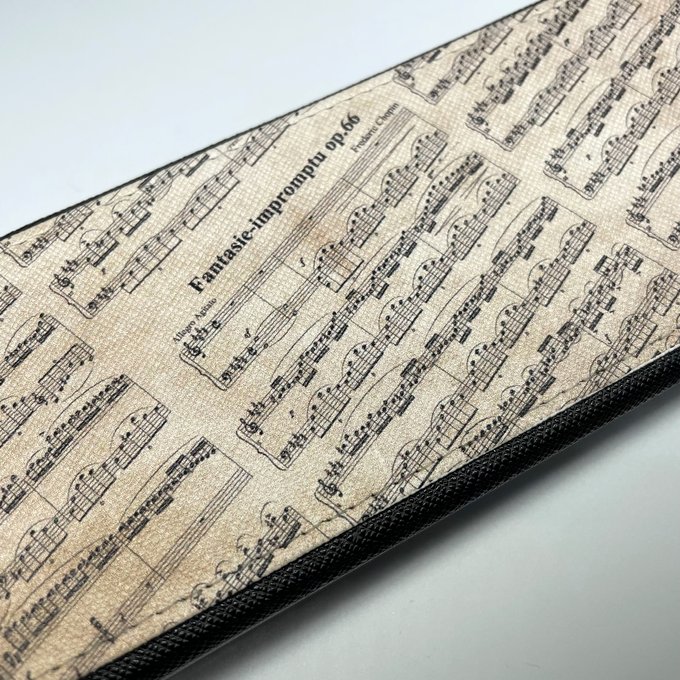 Fantasie-impromptu op.66
Frederic Chopin
Allegro Agitato